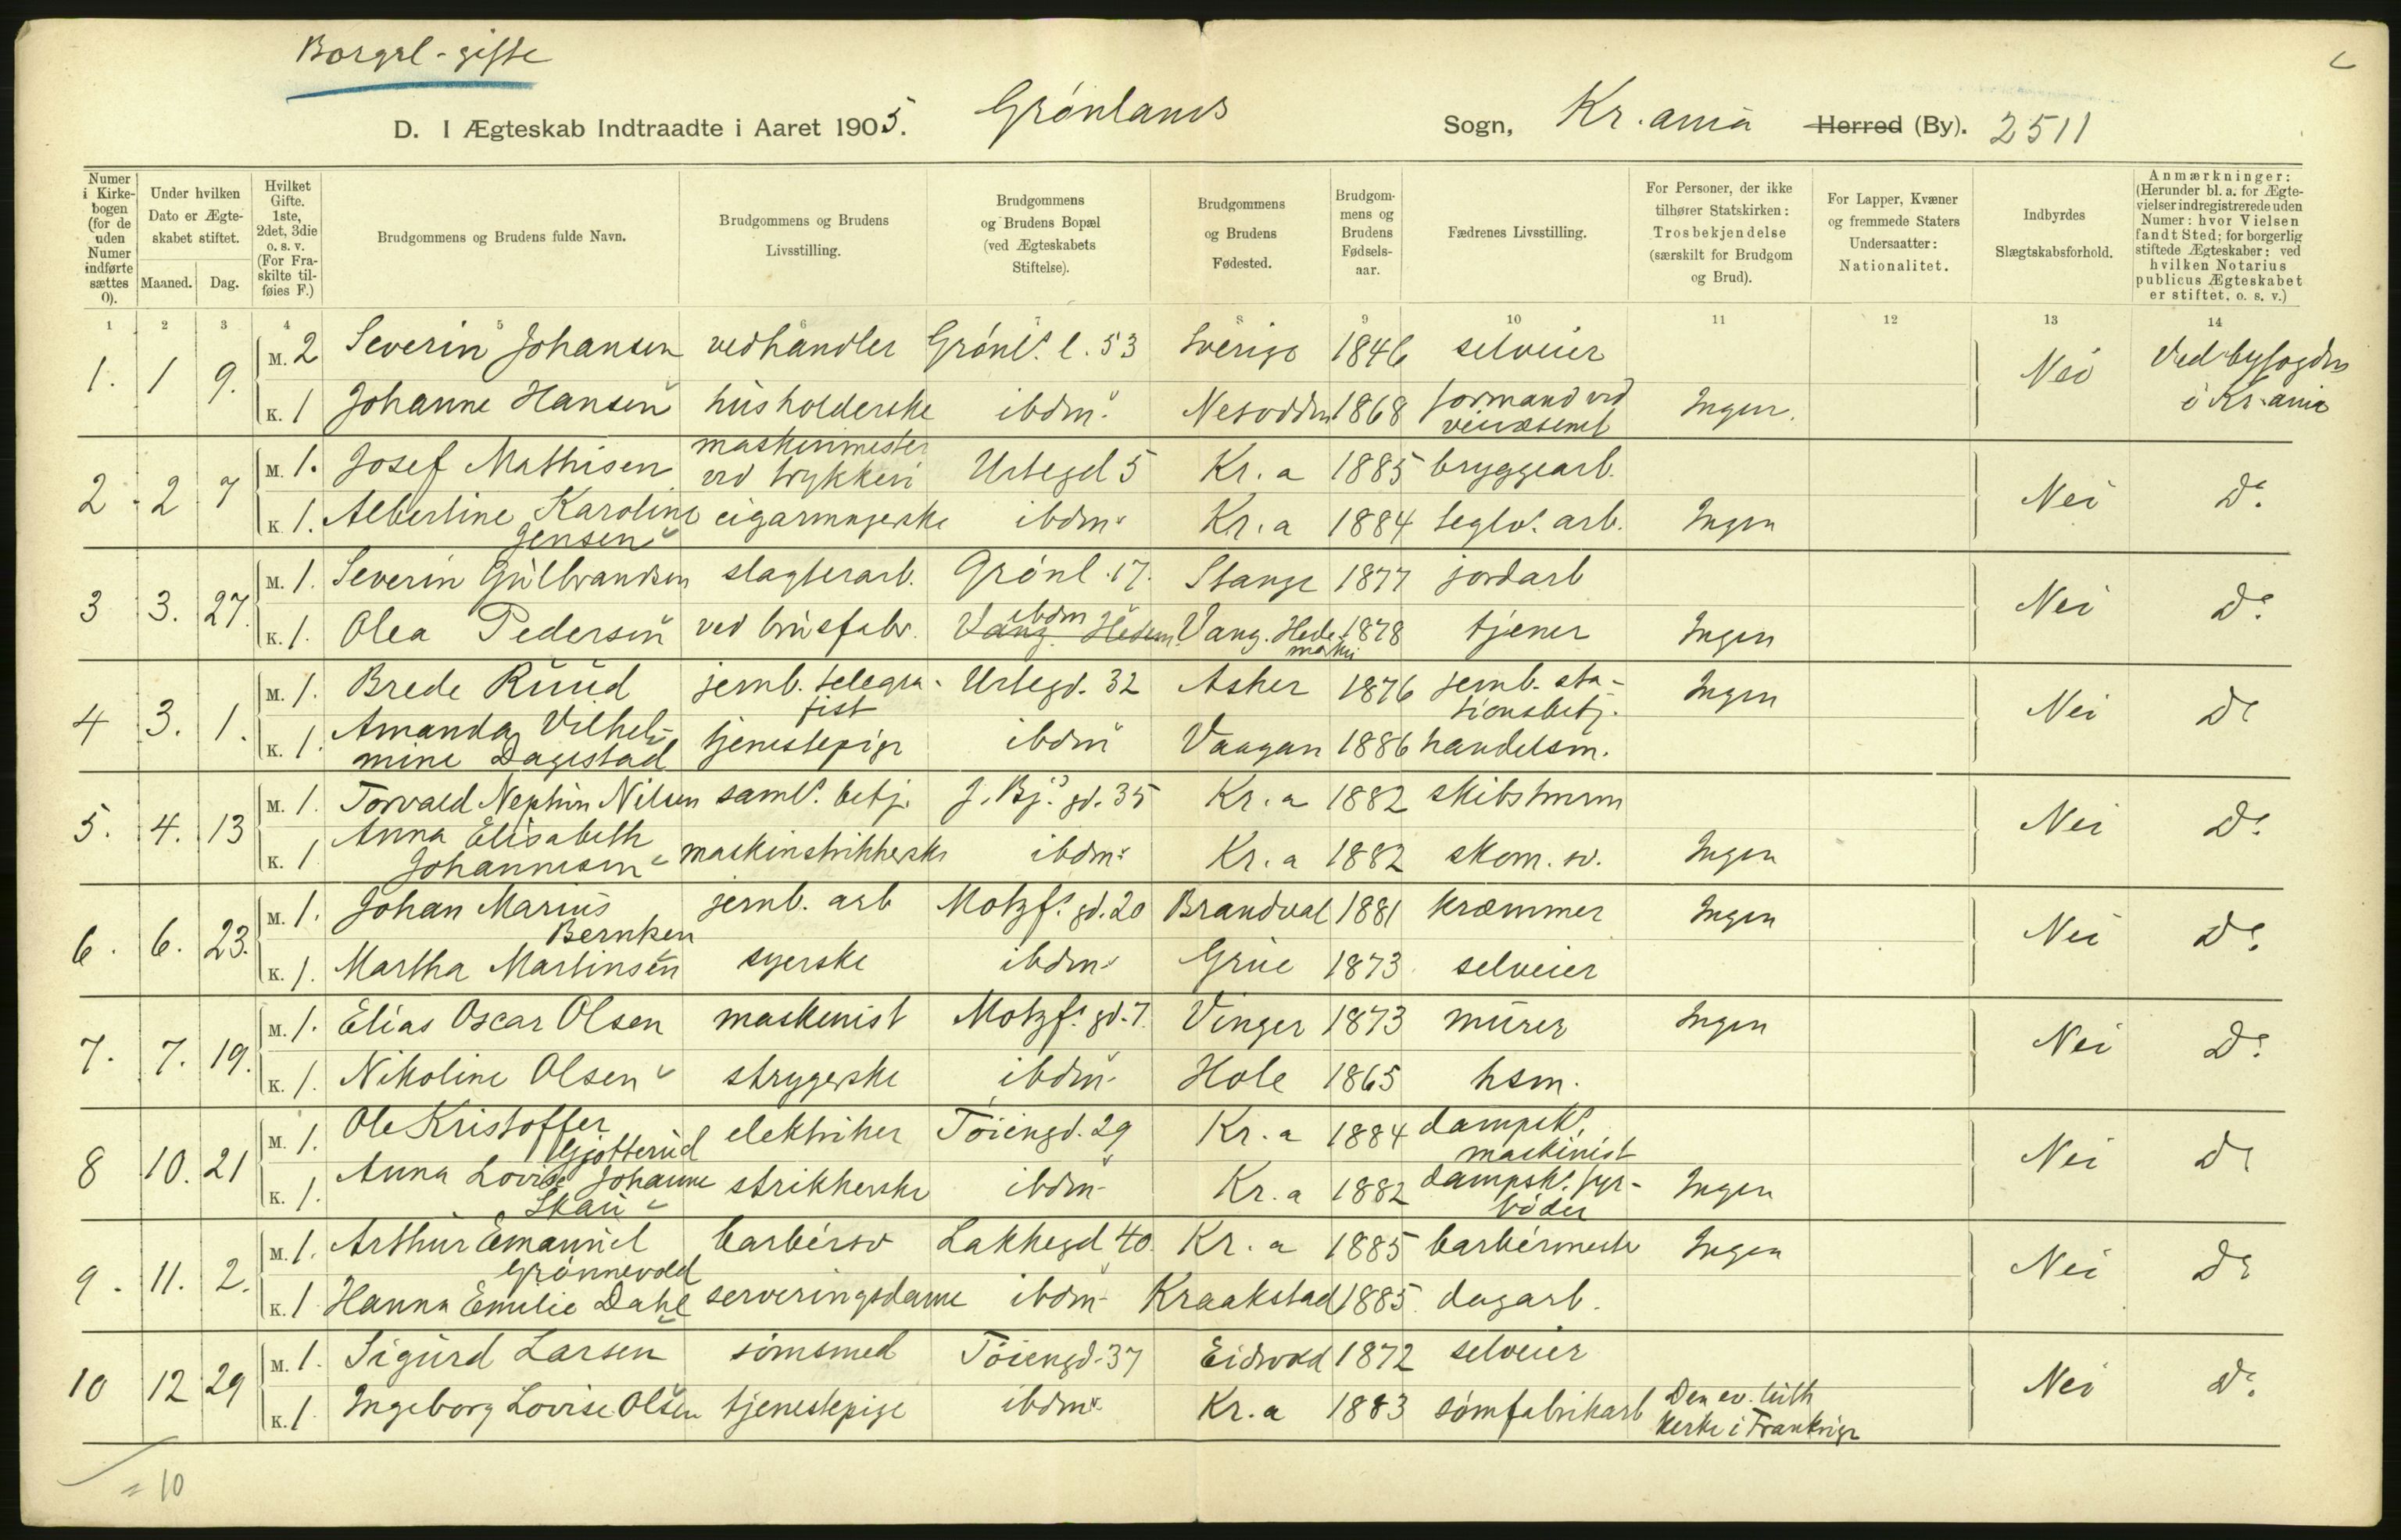 Borgel-gifte
D. I Ægteskab Indtraadte i Aaret 1905. Grønlands Sogn, Kr.ania Herred (By). 2511
Numer i Kirkebogen (for de uden Numer indførte sættes 0).
Under hvilken Dato er Ægteskabet stiftet. Maaned. Dag.
Hvilket Gifte. 1ste, 2det, 3die o. s. v. (For Fraskilte tilføies F.)
Brudgommens og Brudens fulde Navn.
Brudgommens og Brudens Livsstilling.
Brudgommens og Brudens Bopæl (ved Ægteskabets Stiftelse).
Brudgommens og Brudens Fødested.
Brudgommens og Brudens Fødselsaar.
Fædrenes Livsstilling.
For Personer, der ikke tilhører Statskirken: Trosbekjendelse (særskilt for Brudgom og Brud).
For Lapper, Kvæner og fremmede Staters Undersaatter: Nationalitet.
Indbyrdes Slægtskabsforhold.
Anmærkninger: (Herunder bl. a. for Ægtevielser indregistrerede uden Numer: hvor Vielsen fandt Sted; for borgerlig stiftede Ægteskaber: ved hvilken Notarius publicus Ægteskabet er stiftet, o. s. v.)
1 2 3 4 5 6 7 8 9 10 11 12 13 14
1. 1 9. M. 2 Severin Johansen vedhandler Grønl. l. 53 Sverige 1846 selveier Nei Ved byfogden i Kr.ania
K. 1 Johanne Hansen husholderske ibdm. Nesodden 1868 formand ved veivæsenet Ingen.
2 2 7 M. 1. Josef Mathisen maskinmester ved trykkeri Urtegd 5 Kr.a 1885 bryggearb. Nei Do.
K. 1. Albertine Karoline Jensen cigarmagerske ibdm. Kr.a 1884 teglv. arb. Ingen
3 3. 27. M. 1. Severin Gulbrandsen slagterarb. Grønl. 17. Stange 1877 jordarb Nei Do.
K. 1. Olea Pedersen ved brusfabr. Vang Hedem. ibdm Vang. Hedemarken 1878 tjener Ingen
4 3. 1. M. 1. Brede Ruud jernb. telegrafist Urtegd. 32 Asker 1876 jernb. stationsbetj. Ingen Nei Do
K. 1. Amanda Vilhelmine Dagestad tjenestepige ibdm Vaagan 1886 handelsm.
5. 4. 13 M. 1. Torvald Nephin Nilsen saml. betj. J. Bj. gd. 35 Kr.a 1882 skibstmrm Nei Do.
K. 1 Anna Elisabeth Johannesen maskinstrikkerske ibdm. Kr.a 1882 skom. sv. Ingen
6. 6. 23. M. 1. Johan Marius Berntsen jernb. arb Motzf. gd. 20 Brandval 1881 kræmmer Ingen Nei Do.
K. 1. Martha Martinsen syerske ibdm. Grue 1873 selveier
7. 7. 19. M. 1. Elias Oscar Olsen maskinist Motzf. gd. 7. Vinger 1873 murer Ingen Nei Do.
K. 1. Nikoline Olsen strygerske ibdm. Hole 1865 hsm.
8 10. 21 M. 1. Ole Kristoffer Gjotterud elektriker Tøiengd. 29 Kr.a 1884 dampsk. maskinist Nei Do
K. 1. Anna Lovise Johanne Skau strikkerske ibdm. Kr.a 1882 dampsk. fyrbøder Ingen
9. 11. 2. M. 1. Arthur Emanuel Grønnevold barbérsv Lakkegd 40. Kr.a 1885 barbérmester Ingen Nei Do
K. 1 Hanna Emilie Dahl serveringsdame ibdm. Kraakstad 1885. dagarb.
10 12 29 M. 1. Sigurd Larsen sømsmed Tøiengd. 37 Eidsvold 1872 selveier Nei Do.
K. 1. Ingeborg Lovise Olsen tjenestepige ibdm. Kr.a 1883 sømfabrikarb Den ev. luth kirke i Frankrige
= 10